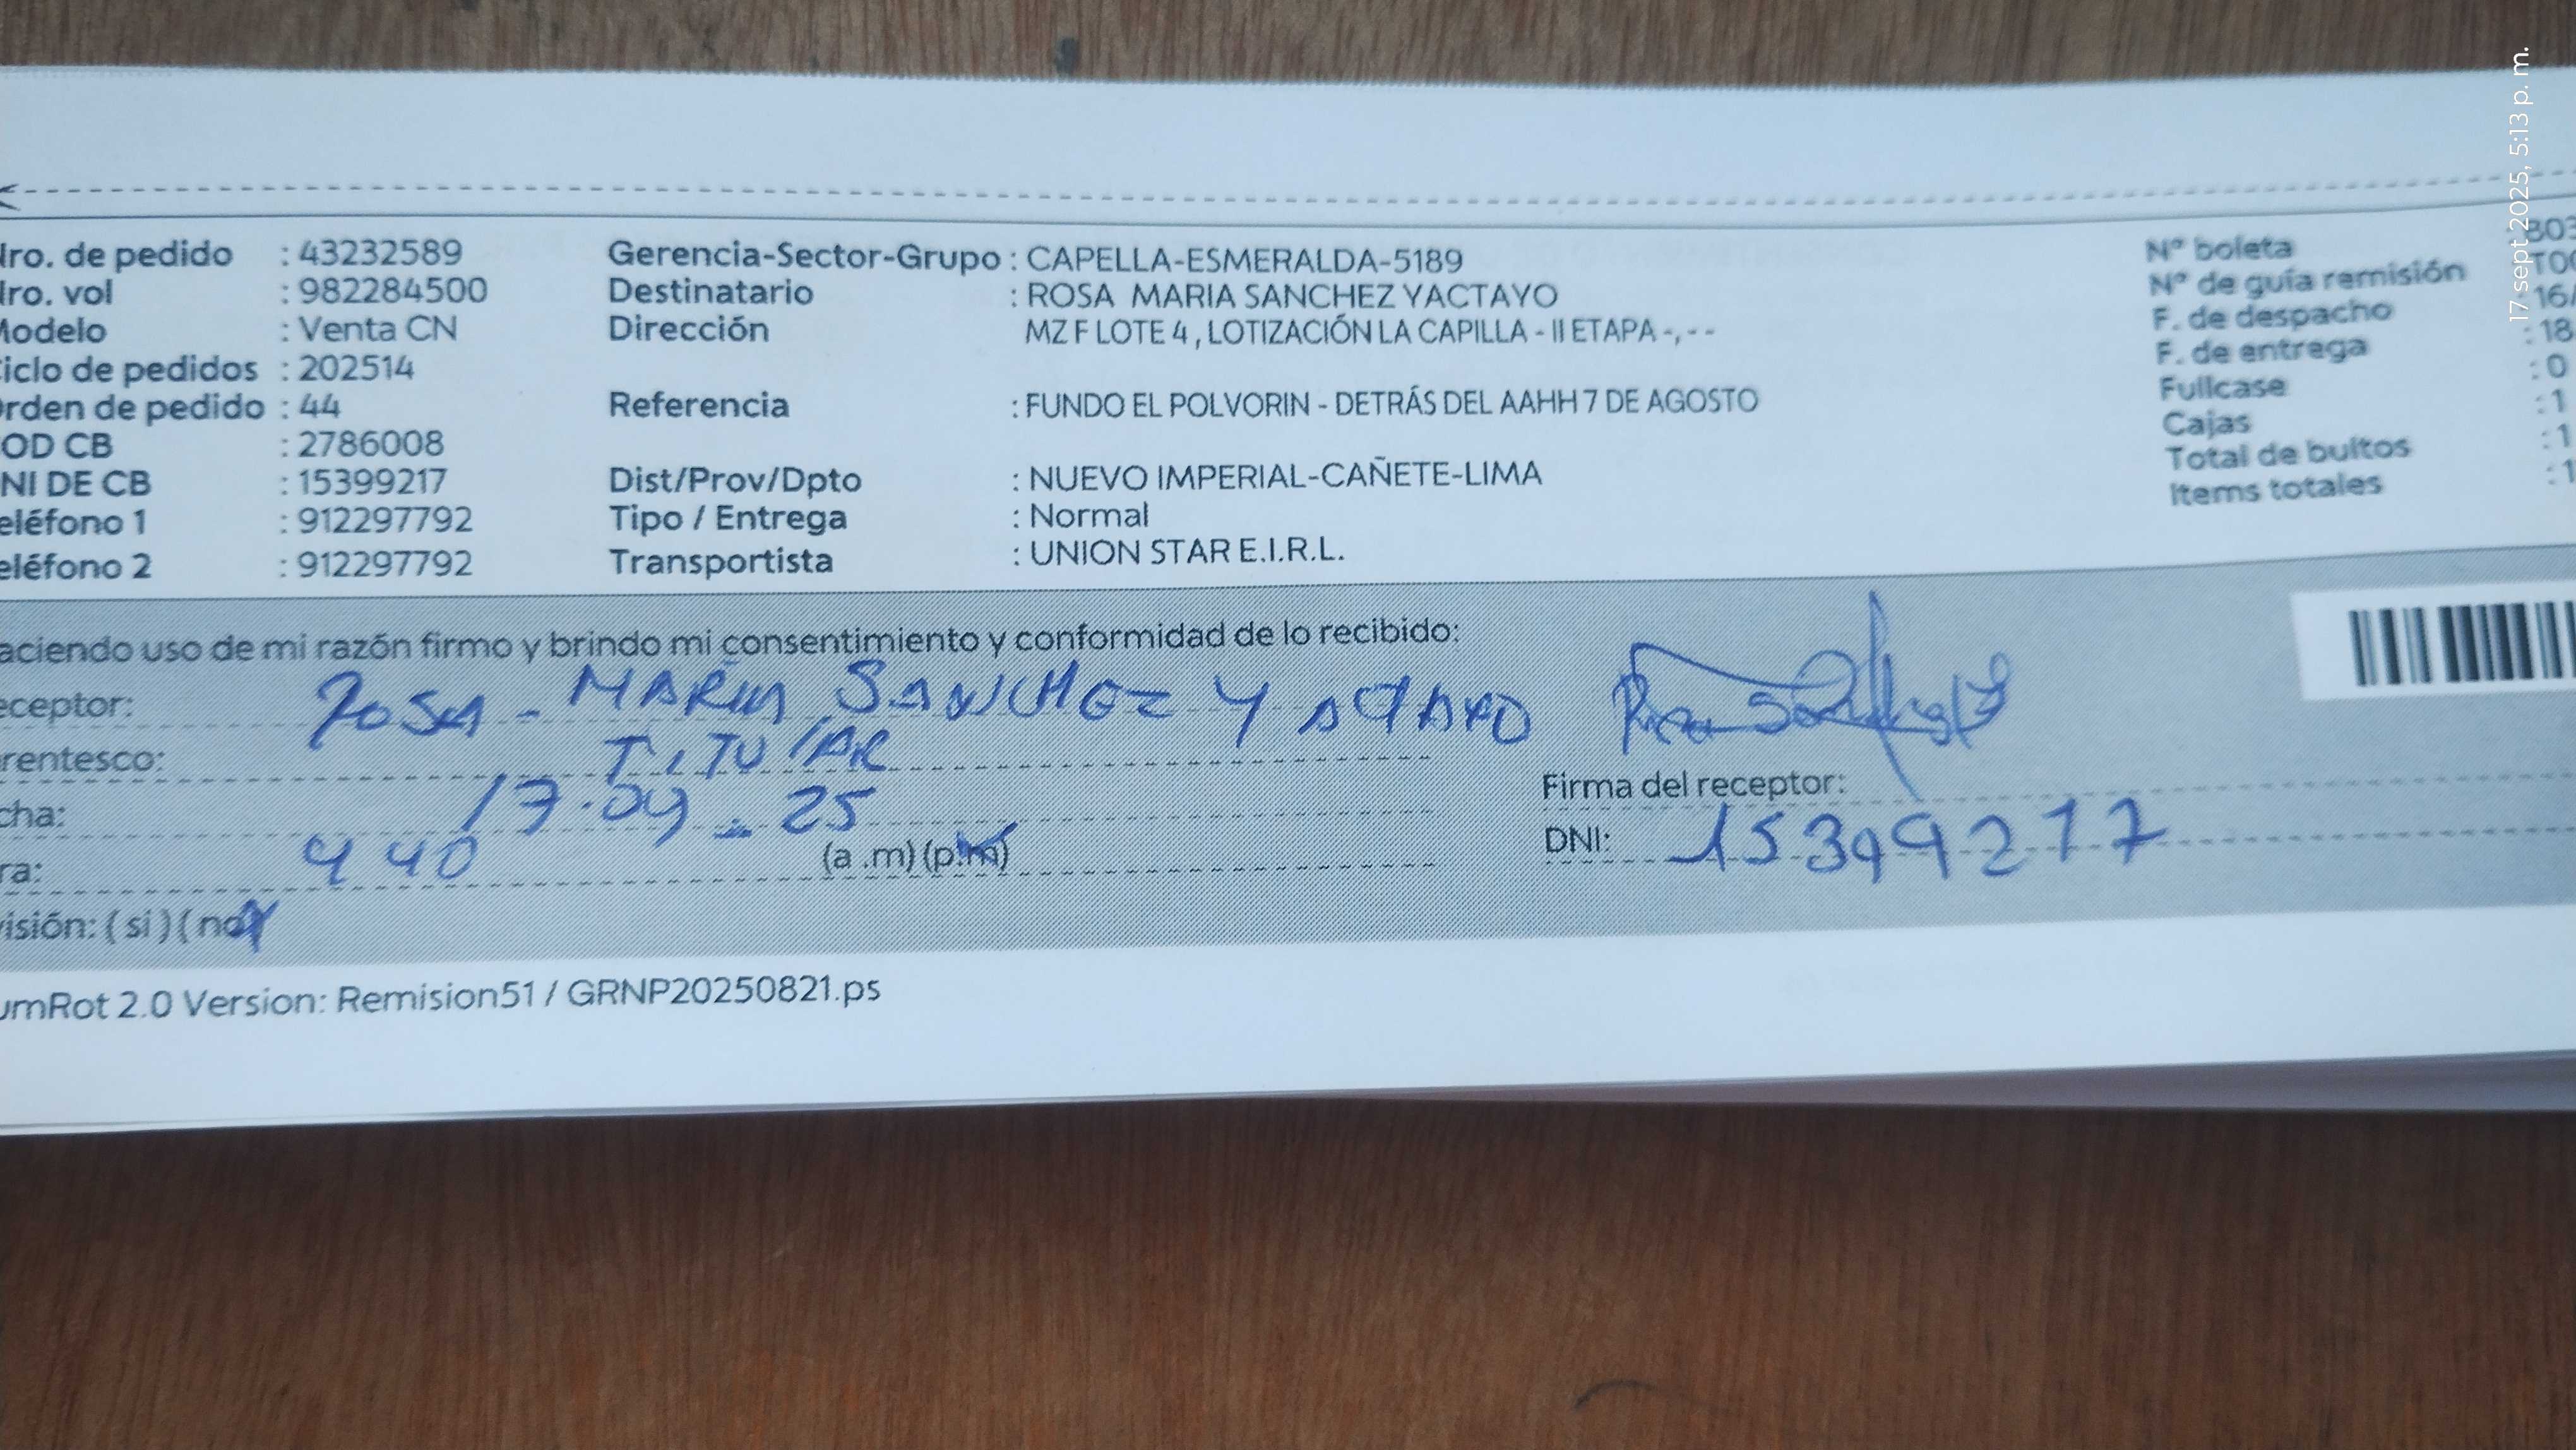 Nro. de pedido : 43232589
Nro. vol : 982284500
Modelo : Venta CN
Ciclo de pedidos : 202514
Orden de pedido : 44
OD CB : 2786008
NI DE CB : 15399217
eléfono 1 : 912297792
eléfono 2 : 912297792
Gerencia-Sector-Grupo : CAPELLA-ESMERALDA-5189
Destinatario : ROSA MARIA SANCHEZ YACTAYO
Dirección MZ F LOTE 4 , LOTIZACIÓN LA CAPILLA - II ETAPA -, - -
Referencia : FUNDO EL POLVORIN - DETRÁS DEL AAHH 7 DE AGOSTO
Dist/Prov/Dpto : NUEVO IMPERIAL-CAÑETE-LIMA
Tipo / Entrega : Normal
Transportista : UNION STAR E.I.R.L.
N° boleta B03
N° de guía remisión T00
F. de despacho 16/
F. de entrega : 18
Fullcase : 0
Cajas : 1
Total de bultos : 1
Items totales : 1
aciendo uso de mi razón firmo y brindo mi consentimiento y conformidad de lo recibido:
eceptor: ROSA - MARIA SANCHEZ YACTAYO
rentesco: TITULAR
cha: 17.09 - 25
ra: 4 40 (a .m) (p.m)
visión: ( si ) ( no )
Firma del receptor:
DNI: 15399217
umRot 2.0 Version: Remision51 / GRNP20250821.ps
17 sept 2025, 5:13 p. m.